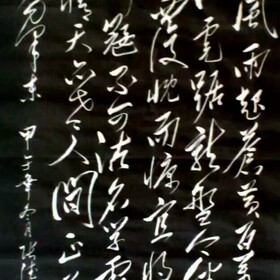 風雨起蒼黃百萬
虎踞龍盤今
覆慨而慷宜將
寇不可沽名學霸
情天亦老人間正道
澤東 甲午年